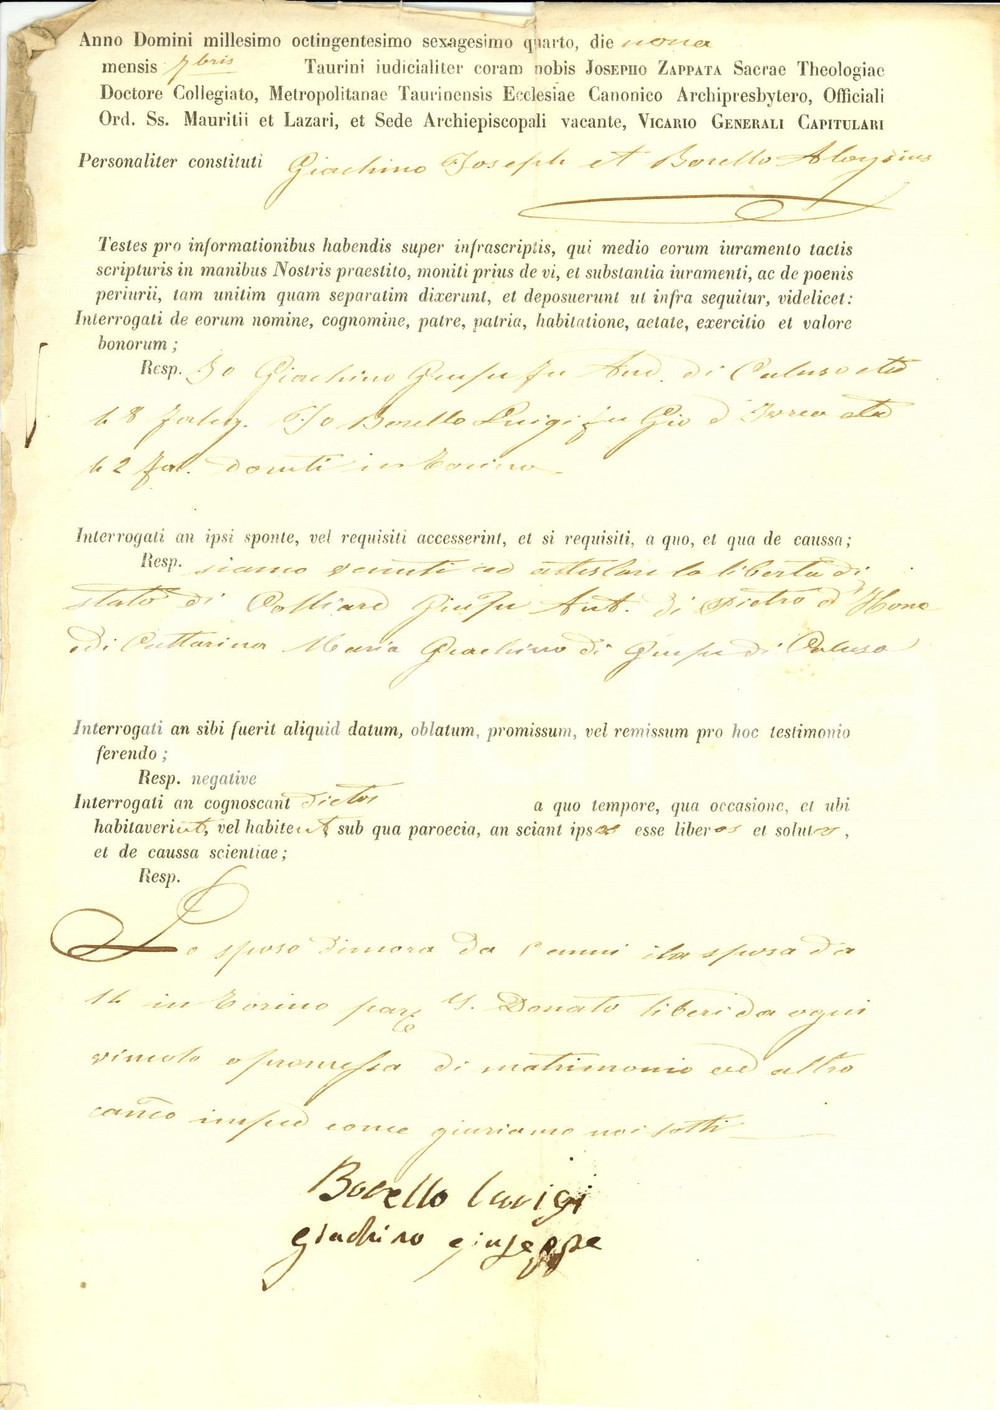 Anno Domini millesimo octingentesimo sexagesimo quarto, die nona
mensis 7bris Taurini iudicialiter coram nobis JOSEPHO ZAPPATA Sacrae Theologiae
Doctore Collegiato, Metropolitanae Taurinensis Ecclesiae Canonico Archipresbytero, Officiali
Ord. Ss. Mauritii et Lazari, et Sede Archiepiscopali vacante, VICARIO GENERALI CAPITULARI
Personaliter constituti Giachino Joseph et Borello Aloysius
Testes pro informationibus habendis super infrascriptis, qui medio eorum iuramento tactis
scripturis in manibus Nostris praestito, moniti prius de vi, et substantia iuramenti, ac de poenis
periurii, tam unitim quam separatim dixerunt, et deposuerunt ut infra sequitur, videlicet:
Interrogati de eorum nomine, cognomine, patre, patria, habitatione, aetate, exercitio et valore
bonorum;
Resp. Io Giachino fu And. di Caluso età
48 Io Borello Luigi fu Gio d'Ivrea età
42 in Torino
Interrogati an ipsi sponte, vel requisiti accesserint, et si requisiti, a quo, et qua de caussa;
Resp. siamo venuti ad attestare la libertà di
stato di Colliard Ant. di Pietro d'Hone
e di Cattarina Maria Giachino di di Caluso
Interrogati an sibi fuerit aliquid datum, oblatum, promissum, vel remissum pro hoc testimonio
ferendo;
Resp. negative
Interrogati an cognoscant dictos a quo tempore, qua occasione, et ubi
habitaverint, vel habitent sub qua paroecia, an sciant ipsos esse liberos et solutos,
et de caussa scientiae;
Resp.
Lo sposo dimora da anni e la sposa da
14 in Torino par S. Donato liberi da ogni
vincolo o promessa di matrimonio ed altro
canco imped come giuriamo noi sotti
Borello Luvigi
giachino giuseppe